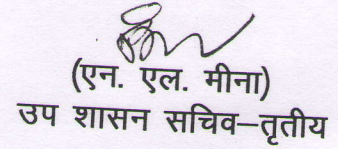 (एन. एल. मीना)
उप शासन सचिव–तृतीय